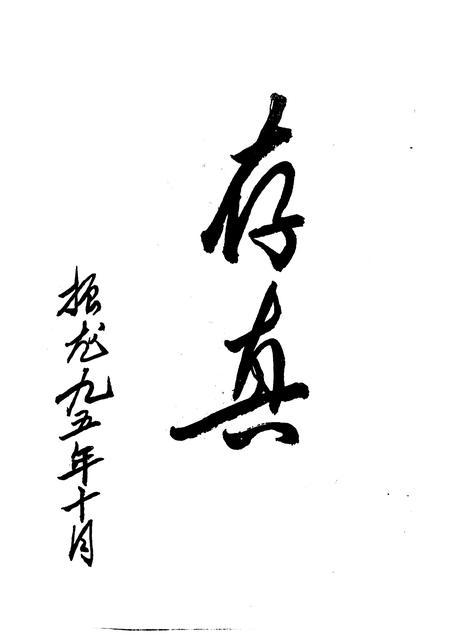 存真
振龙九五年十月